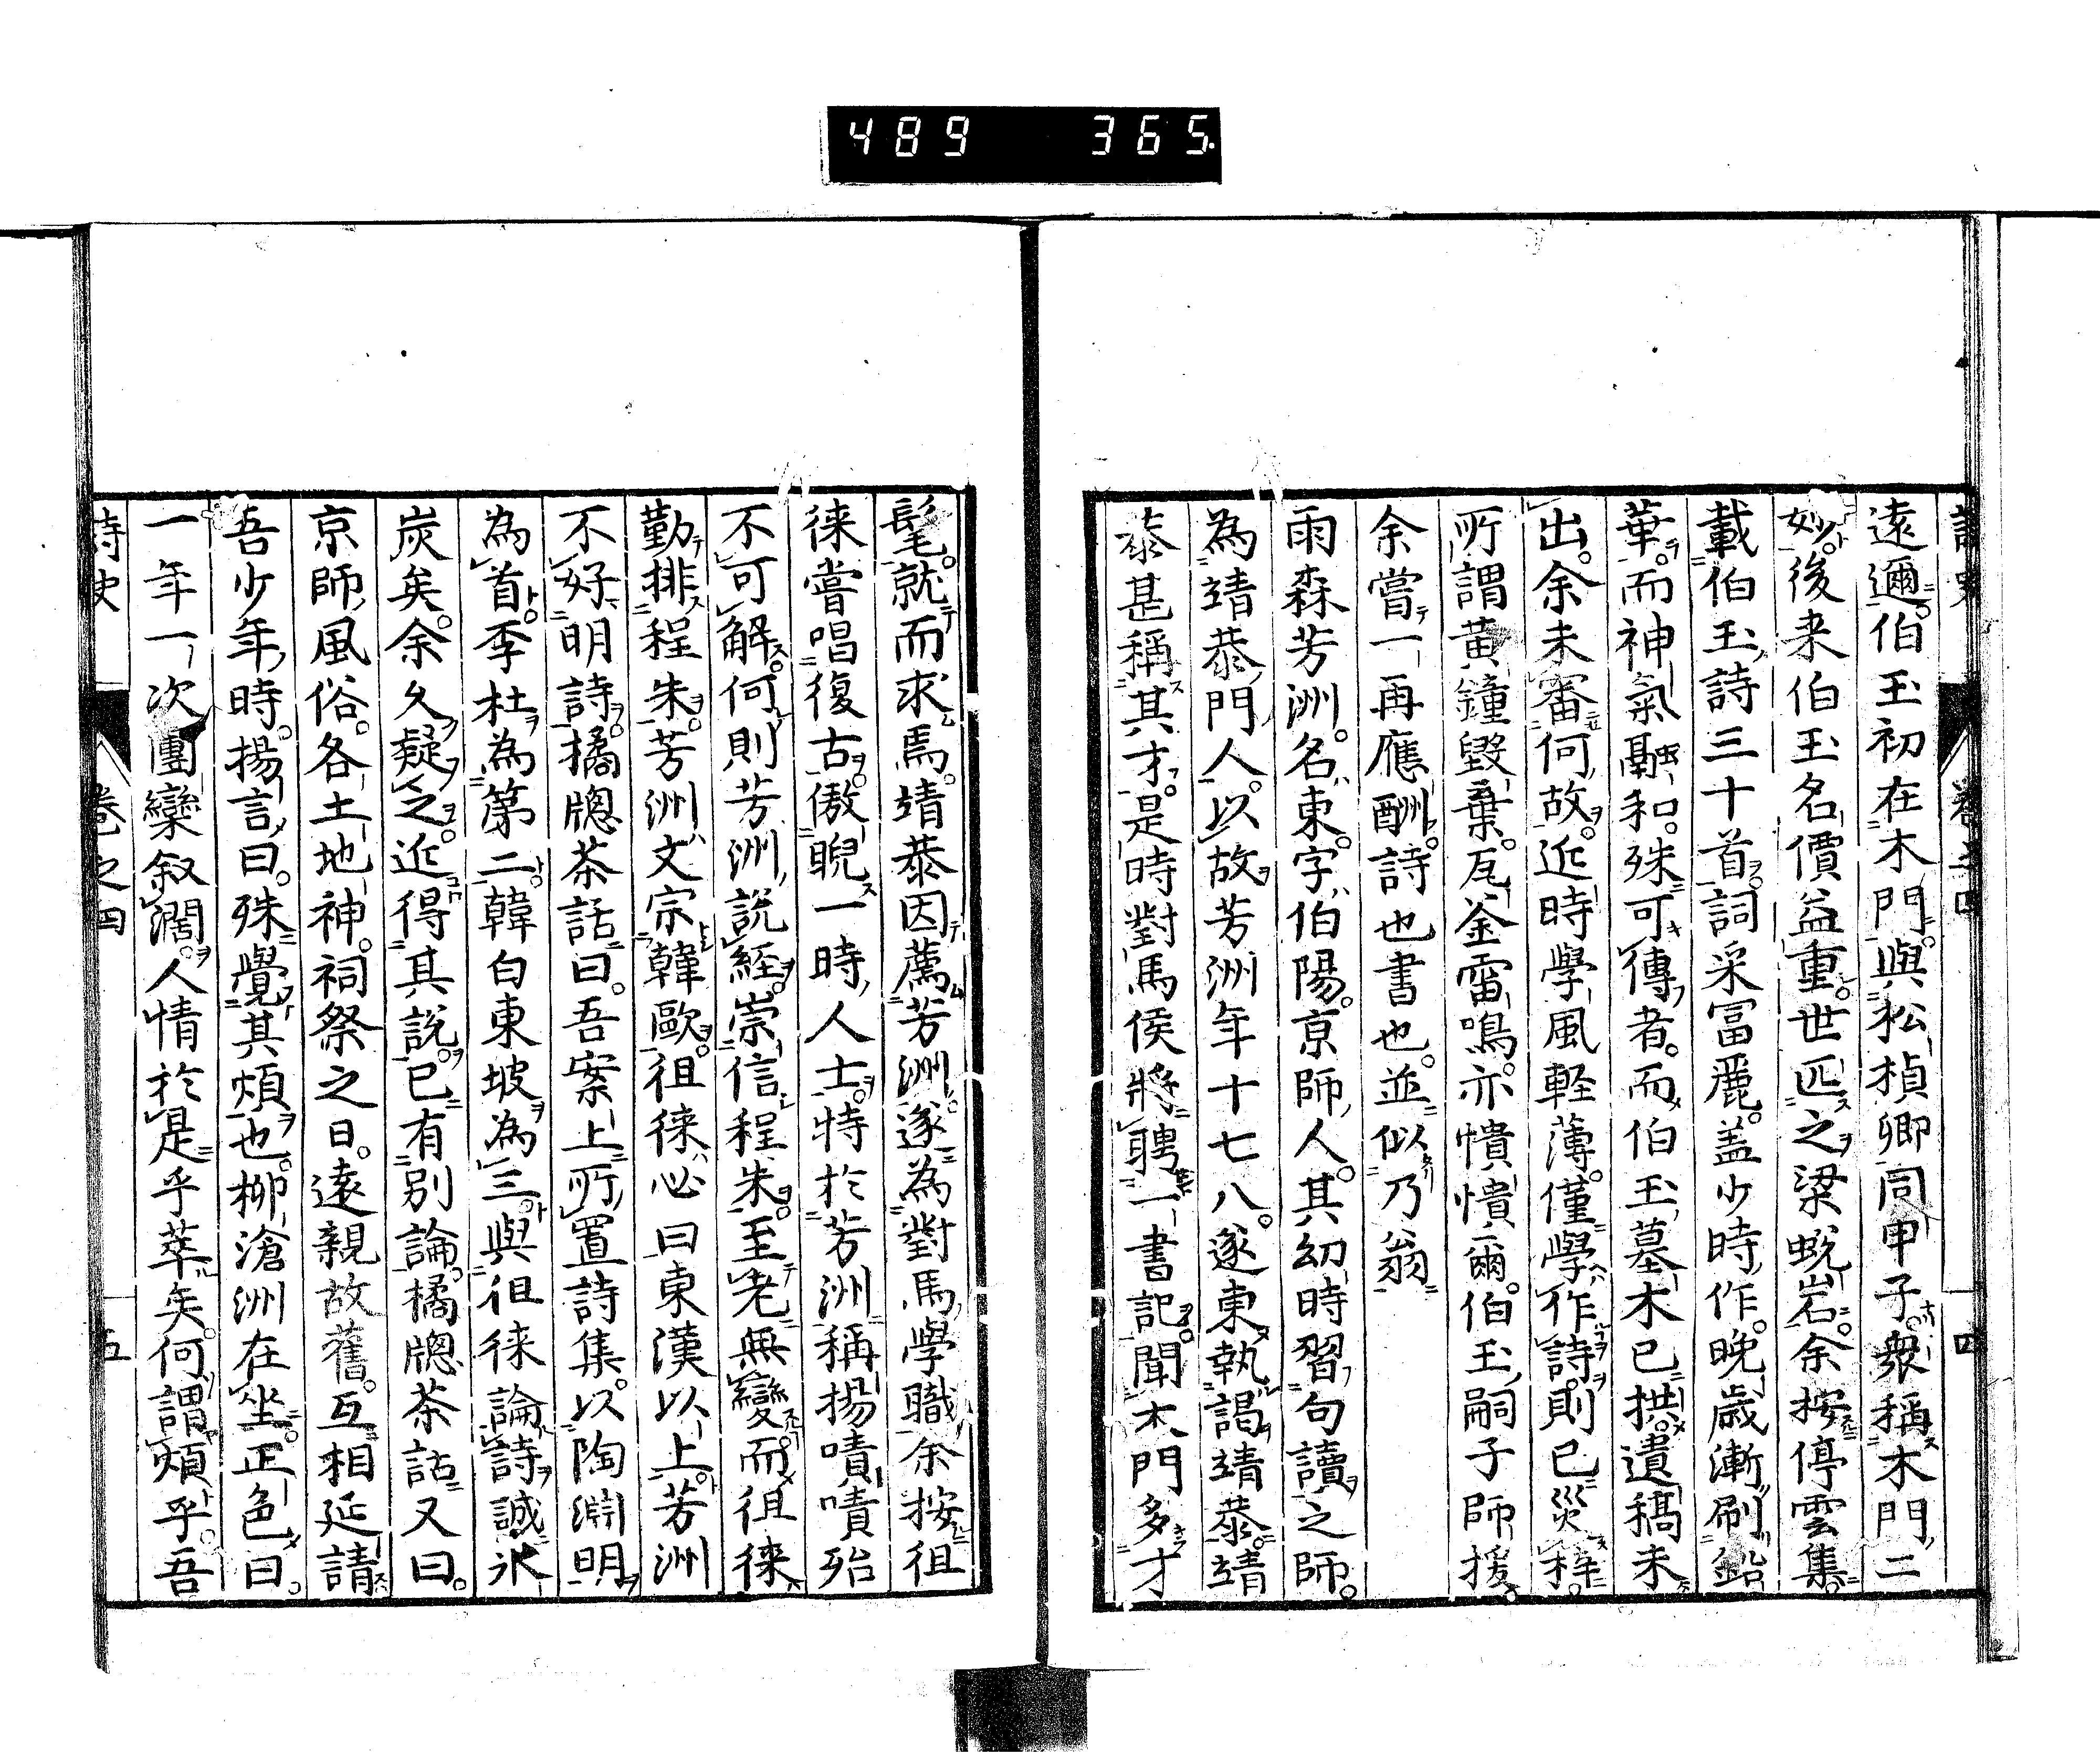 489 365
詩史 卷之四 四
遠邇。伯玉初在木門。與松楨卿同甲子。衆稱木門二
妙。後来伯玉名價益重。世匹之梁蛻岩。余按停雲集。
載伯玉詩三十首。詞采富麗。盖少時作。晚歲漸刷鉛
華。而神氣融和。殊可傳者。而伯玉墓木已拱。遺稿未
出。余未審何故。近時學風軽薄。僅學作詩。則已災梓。
所謂黄鐘毀棄。瓦釜雷鳴。亦憒憒爾。伯玉嗣子師援。
余嘗一再應酬。詩也書也。並似乃翁
雨森芳洲。名東。字伯陽。京師人。其幼時習句讀之師。
為靖恭門人。以故芳洲年十七八。遂東執謁靖恭。靖
恭甚稱其才。是時對馬侯將聘一書記。聞木門多才
髦。就而求焉。靖恭因薦芳洲。遂為對馬學職。余按徂
徠嘗唱復古。傲睨一時人士。特於芳洲稱揚嘖嘖殆
不可解。何則芳洲説經。崇信程朱。至老無變。而徂徠
勤排程朱。芳洲文宗韓歐。徂徠必曰東漢以上。芳洲
不好明詩。橘牕茶話曰。吾案上所置詩集。以陶淵明
為首。李杜為第二。韓白東坡為三。與徂徠論詩。誠氷
炭矣。余久疑之。近得其説。已有別論。橘牕茶話又曰。
京師風俗。各土地神。祠祭之日。遠親故舊。互相延請
吾少年時。揚言曰。殊覺其煩也。柳滄洲在坐。正色曰。
一年一次。團欒叙濶。人情於是乎萃矣。何謂煩乎。吾
詩史 卷之四 五